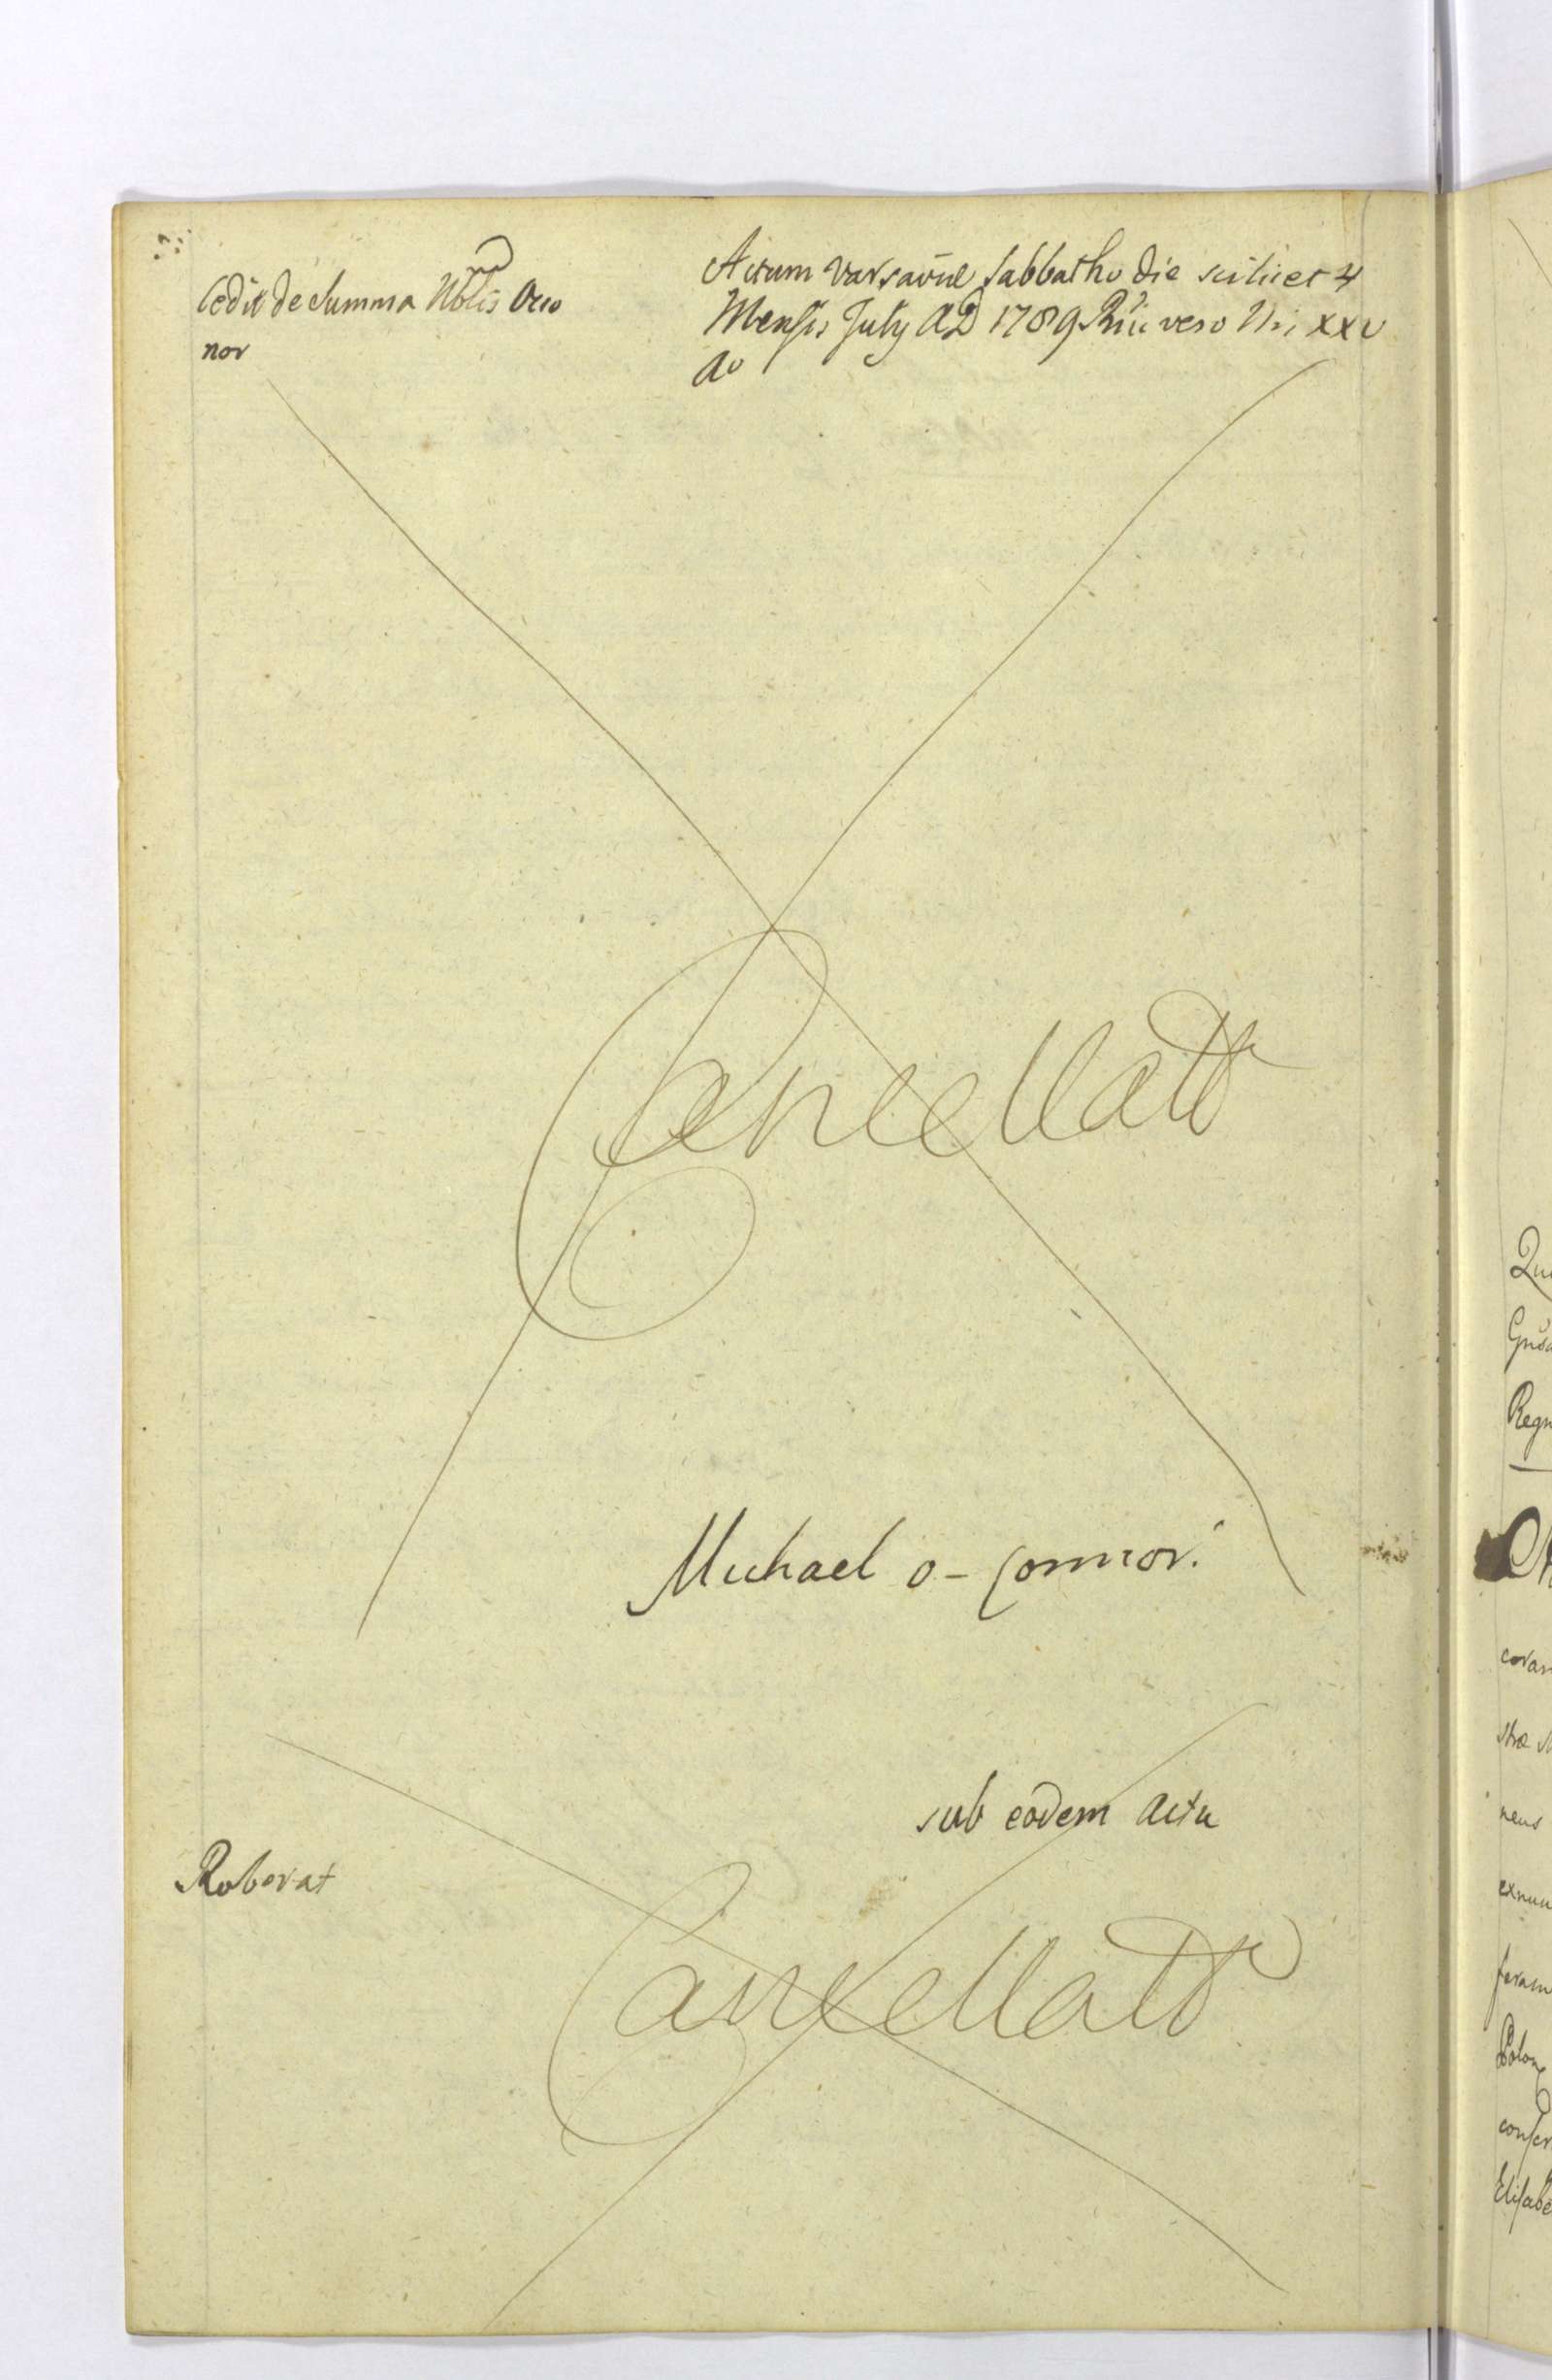 Cedit de Summa Nblis Oco
nor
Actum Varsaviæ Sabbatho die scilicet 4
Mensis July AD 1789 Rni vero Nri XXV
Ao
Cancellatt
Michael o-Connor.
sub eodem Actu
Roborat
Cancellatt
Regn
coran
neus
Elisabe